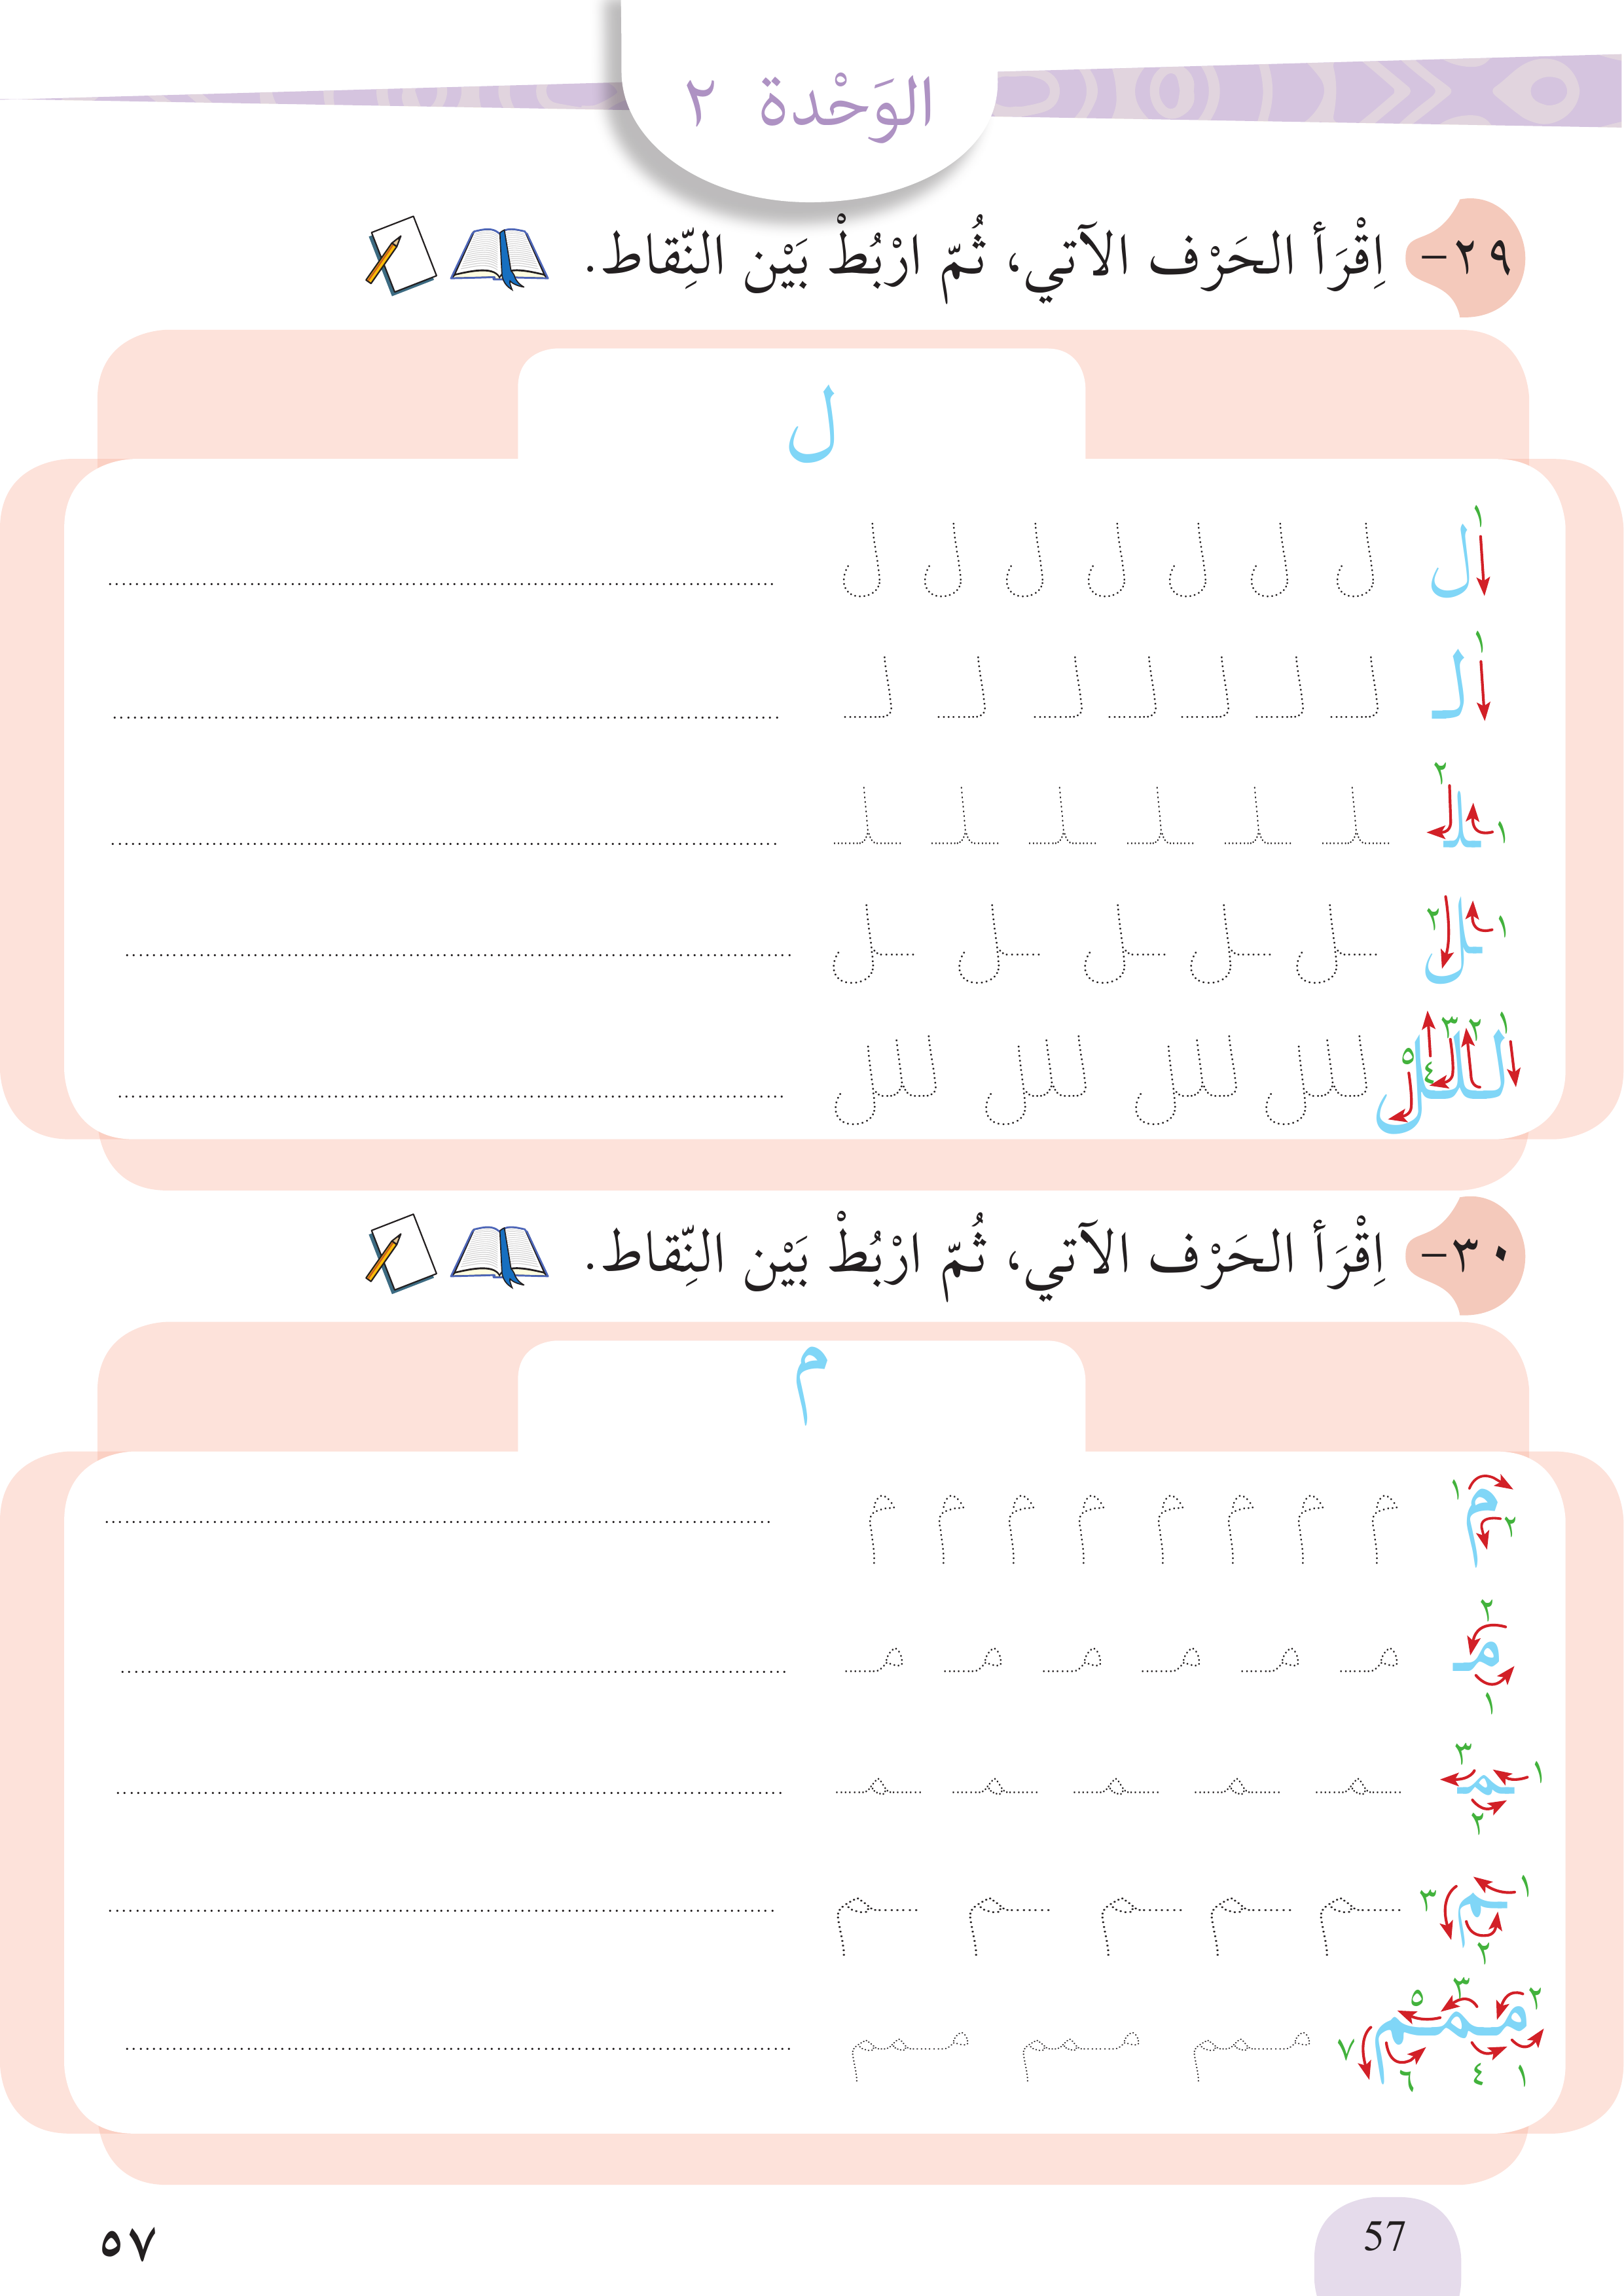 الوَحْدة ٢
٢٩- اِقْرَأ الحَرْف الآتي، ثُمّ ارْبُطْ بَيْن النِّقاط.
ل
ل ١ ل ل ل ل ل ل ل
لـ ١ لـ لـ لـ لـ لـ لـ لـ
ـلـ ١ ٢ ـلـ ـلـ ـلـ ـلـ ـلـ ـلـ
ـل ١ ٢ ـل ـل ـل ـل ـل
للل ١ ٢ ٣ ٤ ٥ للل للل للل للل
٣٠- اِقْرَأ الحَرْف الآتي، ثُمّ ارْبُطْ بَيْن النِّقاط.
م
م ١ ٢ م م م م م م م م
مـ ١ ٢ مـ مـ مـ مـ مـ مـ
ـمـ ١ ٢ ٣ ـمـ ـمـ ـمـ ـمـ ـمـ
ـم ١ ٢ ٣ ـم ـم ـم ـم ـم
ممم ١ ٢ ٣ ٤ ٥ ٦ ٧ ممم ممم ممم
57
٥٧